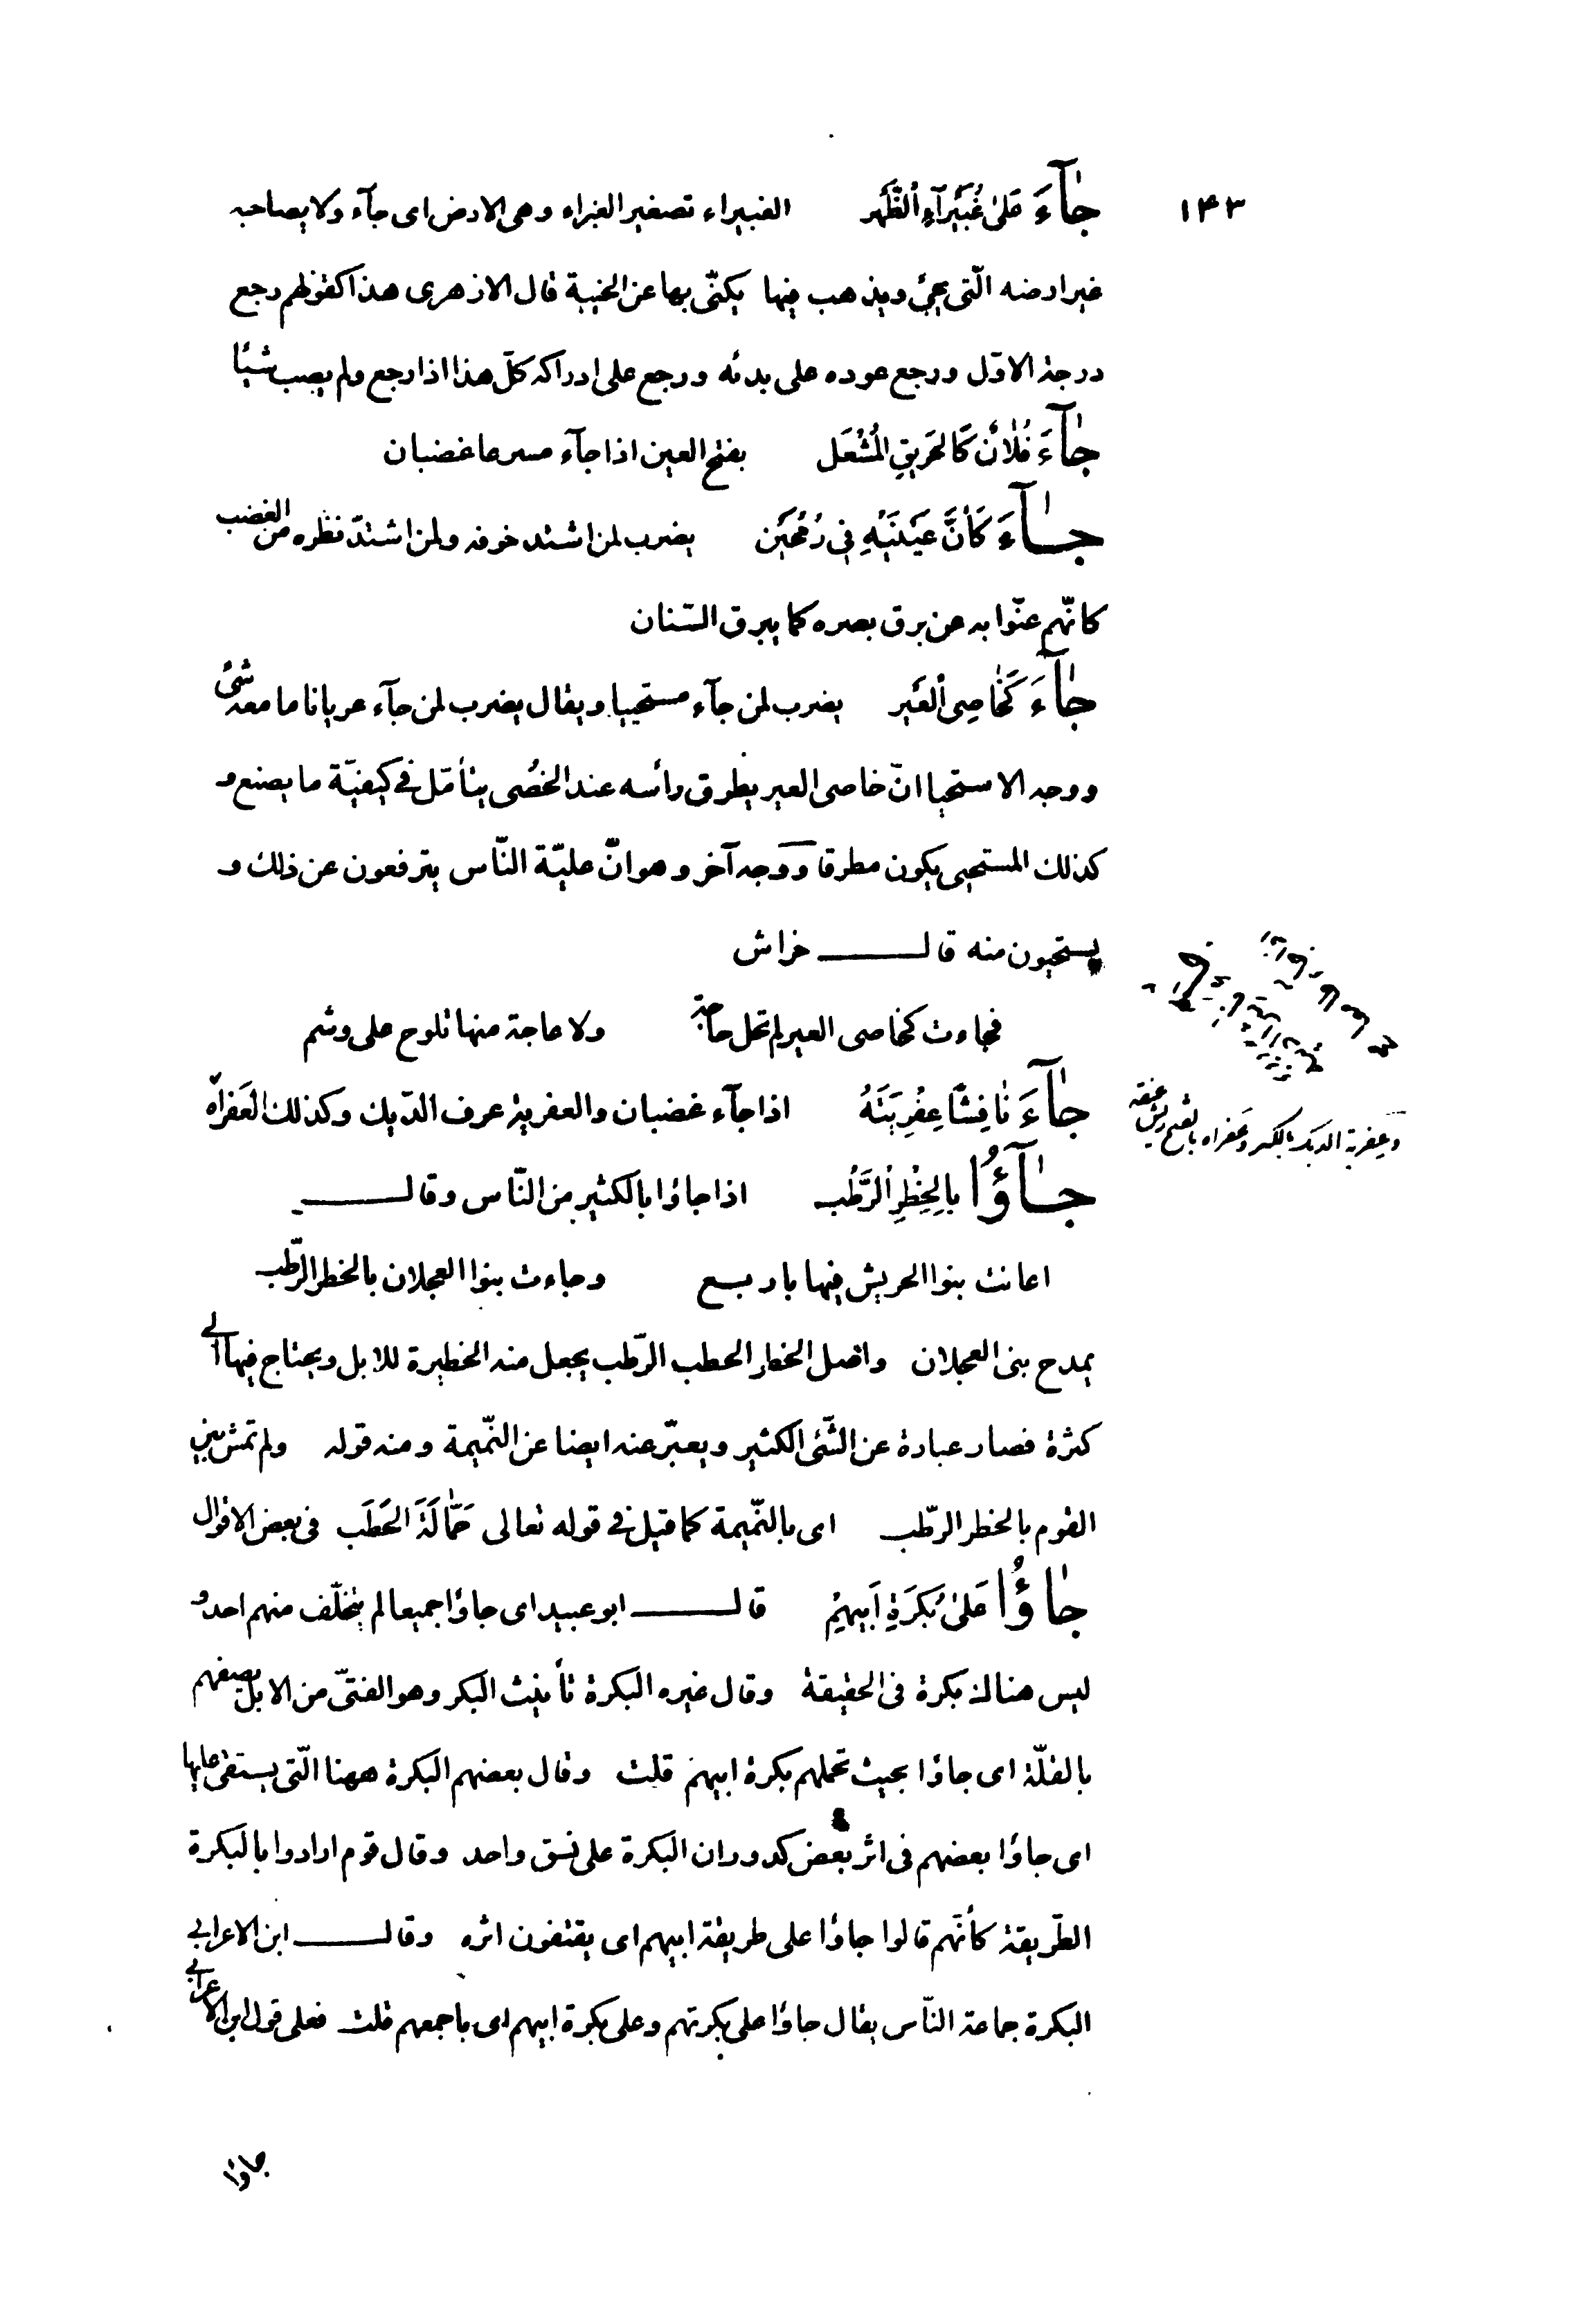 ١٤٣
جٰٓاءَ عَلىٰ غُبَيْرَآءِ الظَّهْرِ الغبيراء تصغير الغبراء وهى الارض اى جآء ولا يصاحبه
غير ارضه الّتى يجئ ويذهب فيها يكنّى بها عن الخيبة قال الازهرى هذا كقولهم رجع
درجة الاوّل ورجع عوده على بدئه ورجع على ادراكه كلّ هذا اذا رجع ولم يصب شيئا
جٰٓاءَ فُلٰانٌ كَالحَرِيقِ المُشْعَل بفتح العين اذا جآء مسرعا غضبان
جٰٓاءَ كَاَنَّ عَيْنَيْهِ فى رُمْحَيْنِ يضرب لمن اشتد خوفه ولمن اشتدّ نظره من الغضب
كانّهم عنّوا به عن برق بصره كما يبرق السّنان
جٰٓاءَ كَخٰاصِى الْعَيْرِ يضرب لمن جآء مستحييا ويقال يضرب لمن جآء عريانا ما معه شئ
ووجه الاستحيا انّ خاصى العير يطرق رأسه عند الخصُى يتأمّل فى كيفيّة ما يصنع و
كذلك المستحيى يكون مطرقا ووجه آخر وهو انّ عليّة النّاس يترفعون عن ذلك و
يستحيون منه قال خراش
فجاءت كخاصى العير لم تحل حاجة ولا عاجة منها تلوح على وشم
جٰٓاءَ نٰافِشًا عِفْرِيَتَهُ اذا جآء غضبان والعفرية عرف الدّيك وكذلك العَفراة
وعِفرية الديك بالكسر وعَفراه بالفتح ريش عنقه
جٰٓاؤُا بِالحِظْرِ الرَّطْبِ اذا جاؤا بالكثير من النّاس وقال
اعانت بنوا الحريش فيها باربع وجاءت بنوا العجلان بالحظر الرّطب
يمدح بنى العجلان واصل الحظر الحطب الرّطب يجعل منه الحظيرة للابل ويحتاج فيها الى
كثرة فصار عبارة عن الشّئ الكثير ويعبّر عنه ايضا عن النّميمة ومنه قوله ولم تمش بين
القوم بالحظر الرّطب اى بالنّميمة كما قيل فى قوله تعالى حَمّٰالَةَ الحَطَب فى بعض الاقوال
جٰاؤُا عَلىٰ بَكْرَةِ اَبيهِمْ قال ابو عبيد اى جاؤا جميعا لم يتخلّف منهم احد و
ليس هناك بكرة فى الحقيقة وقال غيره البكرة تأنيث البكر وهو الفتىّ من الابل يصفهم
بالقلّة اى جاؤا بحيث تحملهم بكرة ابيهم قلت وقال بعضهم البكرة ههنا الّتى يستقى عليها
اى جاؤا بعضهم فى اثر بعض كدوران البكرة على نسق واحد وقال قوم ارادوا بالبكرة
الطّريقة كأنّهم قالوا جاؤا على طريقة ابيهم اى يقتفون اثره وقال ابن الاعرابى
البكرة جماعة النّاس يقال جاؤا على بكرتهم وعلى بكرة ابيهم اى باجمعهم قلت فعلى قول ابن الاعرابى
جاؤا